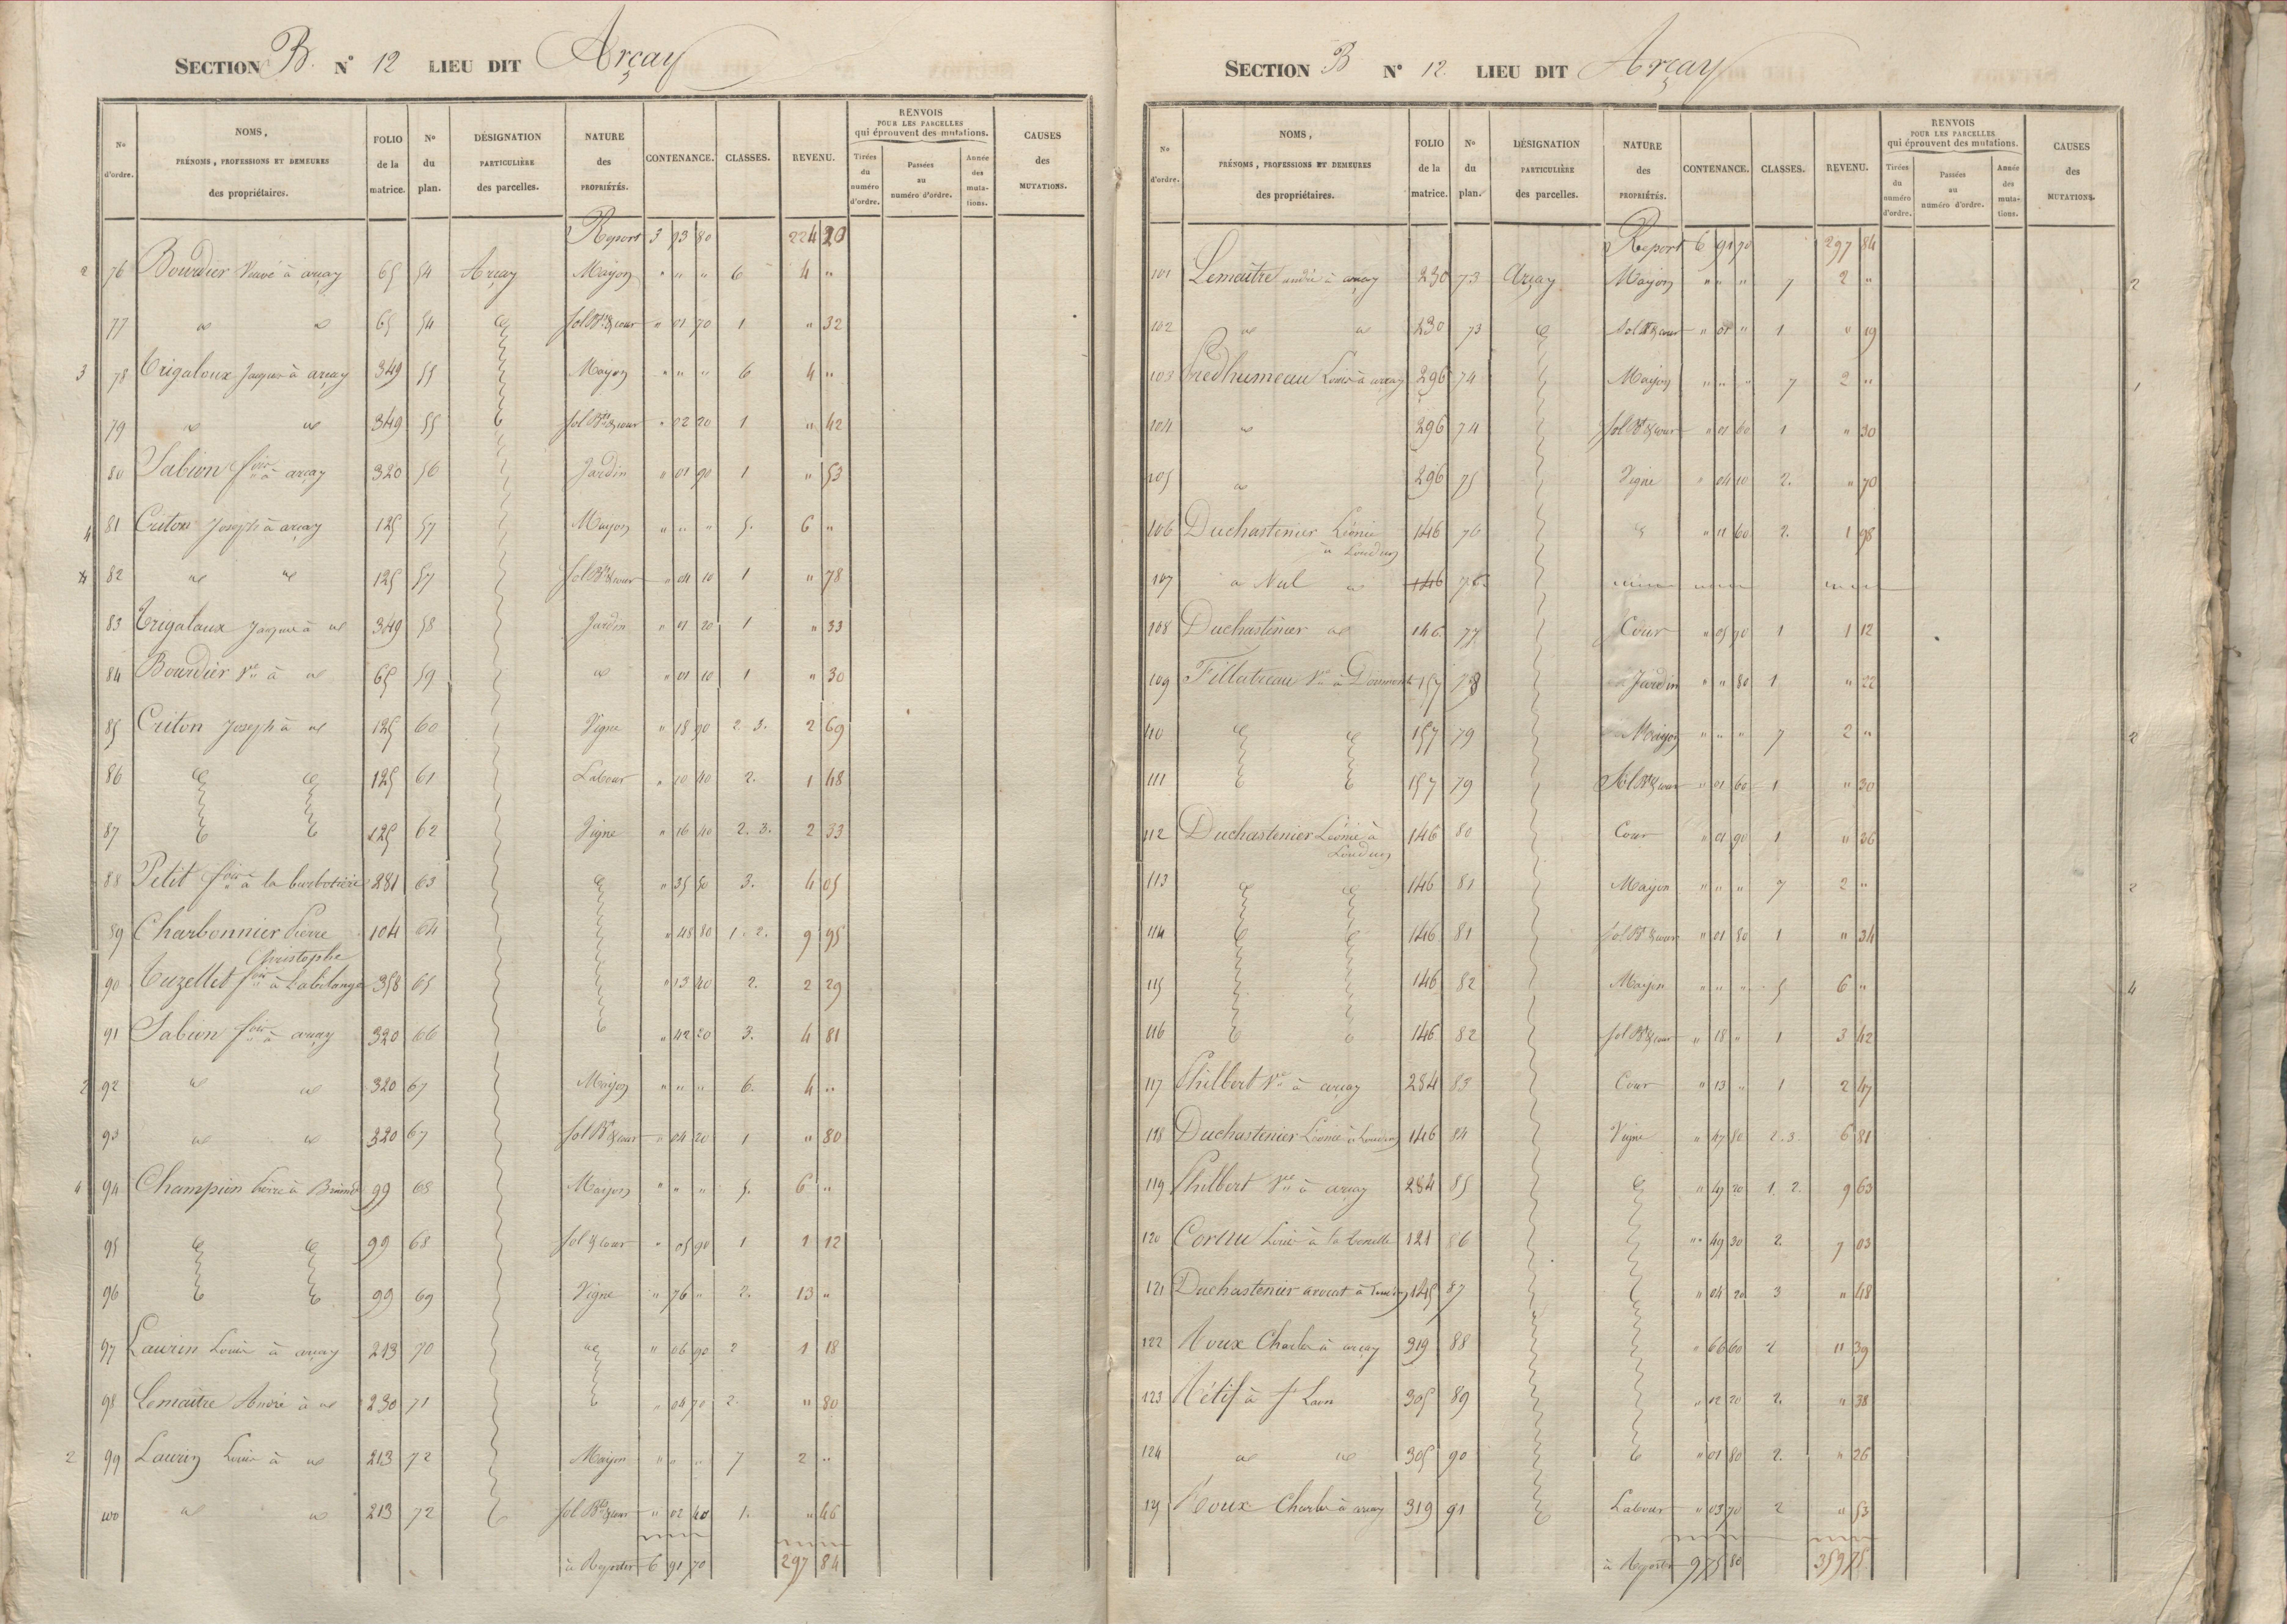 SECTION B. N° 12 LIEU DIT Arçay
N° d'ordre. NOMS, PRÉNOMS, PROFESSIONS ET DEMEURES des propriétaires. FOLIO de la matrice. N° du plan. DÉSIGNATION PARTICULIÈRE des parcelles. NATURE des PROPRIÉTÉS. CONTENANCE. CLASSES. REVENU. RENVOIS POUR LES PARCELLES qui éprouvent des mutations. Tirées du numéro d'ordre. Passées au numéro d'ordre. Année des muta-tions. CAUSES des MUTATIONS.
Report 3 93 80 224 20
2 76 Bourdier Veuve à arçay 65 54 Arçay Maison " " " 6 4 "
77 " " 65 54 Sol Bt & cour " 01 70 1 " 32
3 78 Trigaloux Jacques à arçay 349 55 Maison " " " 6 4 "
79 " " 349 55 Sol Bt & cour " 02 20 1 " 42
80 Sabion fois à arçay 320 56 Jardin " 01 90 1 " 53
4 81 Criton Joseph à arçay 125 57 Maison " " " 5. 6 "
82 " " 125 57 Sol Bt & cour " 04 10 1 " 78
83 Trigaloux Jacques à " 349 58 Jardin " 01 20 1 " 33
84 Bourdier Ve à " 65 59 " " 01 10 1 " 30
85 Criton Joseph à " 125 60 Vigne " 18 90 2. 3. 2 69
86 125 61 Labour " 10 40 2. 1 48
87 125 62 Vigne " 16 40 2. 3. 2 33
88 Petit fois à la barbotière 281 63 " 35 50 3. 4 05
89 Charbonnier Pierre Christophe 104 64 " 48 80 1. 2. 9 95
90 Tuzellet fois à Labelange 358 65 " 13 40 2. 2 29
91 Sabion fois à arçay 320 66 " 42 20 3. 4 81
2 92 " " 320 67 Maison " " " 6. 4 "
93 " " 320 67 Sol Bt & cour " 04 20 1 " 80
4 94 Champion Pierre à 99 68 Maison " " " 5. 6 "
95 99 68 Sol & cour " 05 90 1 1 12
96 99 69 Vigne " 76 " 2. 13 "
97 Laurin Louis à arçay 213 70 " " 06 90 2 1 18
98 Lemaitre André à " 230 71 " 04 70 2. " 80
2 99 Laurin Louis à " 213 72 Maison " " " 7 2 "
100 " " 213 72 Sol Bt & cour " 02 40 1. " 46
à Reporter 6 91 70 297 84
SECTION B N° 12. LIEU DIT Arçay
N° d'ordre. NOMS, PRÉNOMS, PROFESSIONS ET DEMEURES des propriétaires. FOLIO de la matrice. N° du plan. DÉSIGNATION PARTICULIÈRE des parcelles. NATURE des PROPRIÉTÉS. CONTENANCE. CLASSES. REVENU. RENVOIS POUR LES PARCELLES qui éprouvent des mutations. Tirées du numéro d'ordre. Passées au numéro d'ordre. Année des muta-tions. CAUSES des MUTATIONS.
Report 6 91 70 297 84
101 Lemaitre andré à arçay 230 73 Arçay Maison " " " 7 2 " 2
102 " " 230 73 Sol Bt & cour " 01 " 1 " 19
103 Predhumeau Louis à arçay 296 74 Maison " " " 7 2 " 1
104 " 296 74 Sol Bt & cour " 01 60 1 " 30
105 " 296 75 Vigne " 04 10 2. " 70
106 Duchastenier Léonie à Loudun 146 76 " 11 60 2. 1 98
107 " Nul " 146 76
108 Duchastenier " 146 77 Cour " 05 90 1 1 12
109 Fillatreau Ve à 157 78 Jardin " " 80 1 " 22
110 157 79 Maison " " " 7 2 " 2
111 157 79 Sol Bt & cour " 01 60 1 " 30
112 Duchastenier Léonie à Loudun 146 80 Cour " 01 90 1 " 36
113 146 81 Maison " " " 7 2 " 2
114 146 81 Sol Bt & cour " 01 80 1 " 34
115 146 82 Maison " " " 5 6 " 4
116 146 82 Sol Bt & cour " 18 " 1 3 42
117 Philbert Ve à arçay 284 83 Cour " 13 " 1 2 47
118 Duchastenier Léonie à Loudun 146 84 Vigne " 47 80 2. 3 6 81
119 Philbert Ve à arçay 284 85 " 49 20 1. 2. 9 63
120 Cornu Louis à la 121 86 " 49 30 2. 7 03
121 Duchastenier avocat à Loudun 145 87 " 04 20 3 " 48
122 Roux Charles à arçay 319 88 " 66 60 2 11 39
123 Rétif à St Laon 305 89 " 02 20 2. " 38
124 " " 305 90 " 01 80 2. " 26
125 Roux Charles à arçay 319 91 Labour " 03 70 2 " 53
à Reporter 9 75 80 359 75